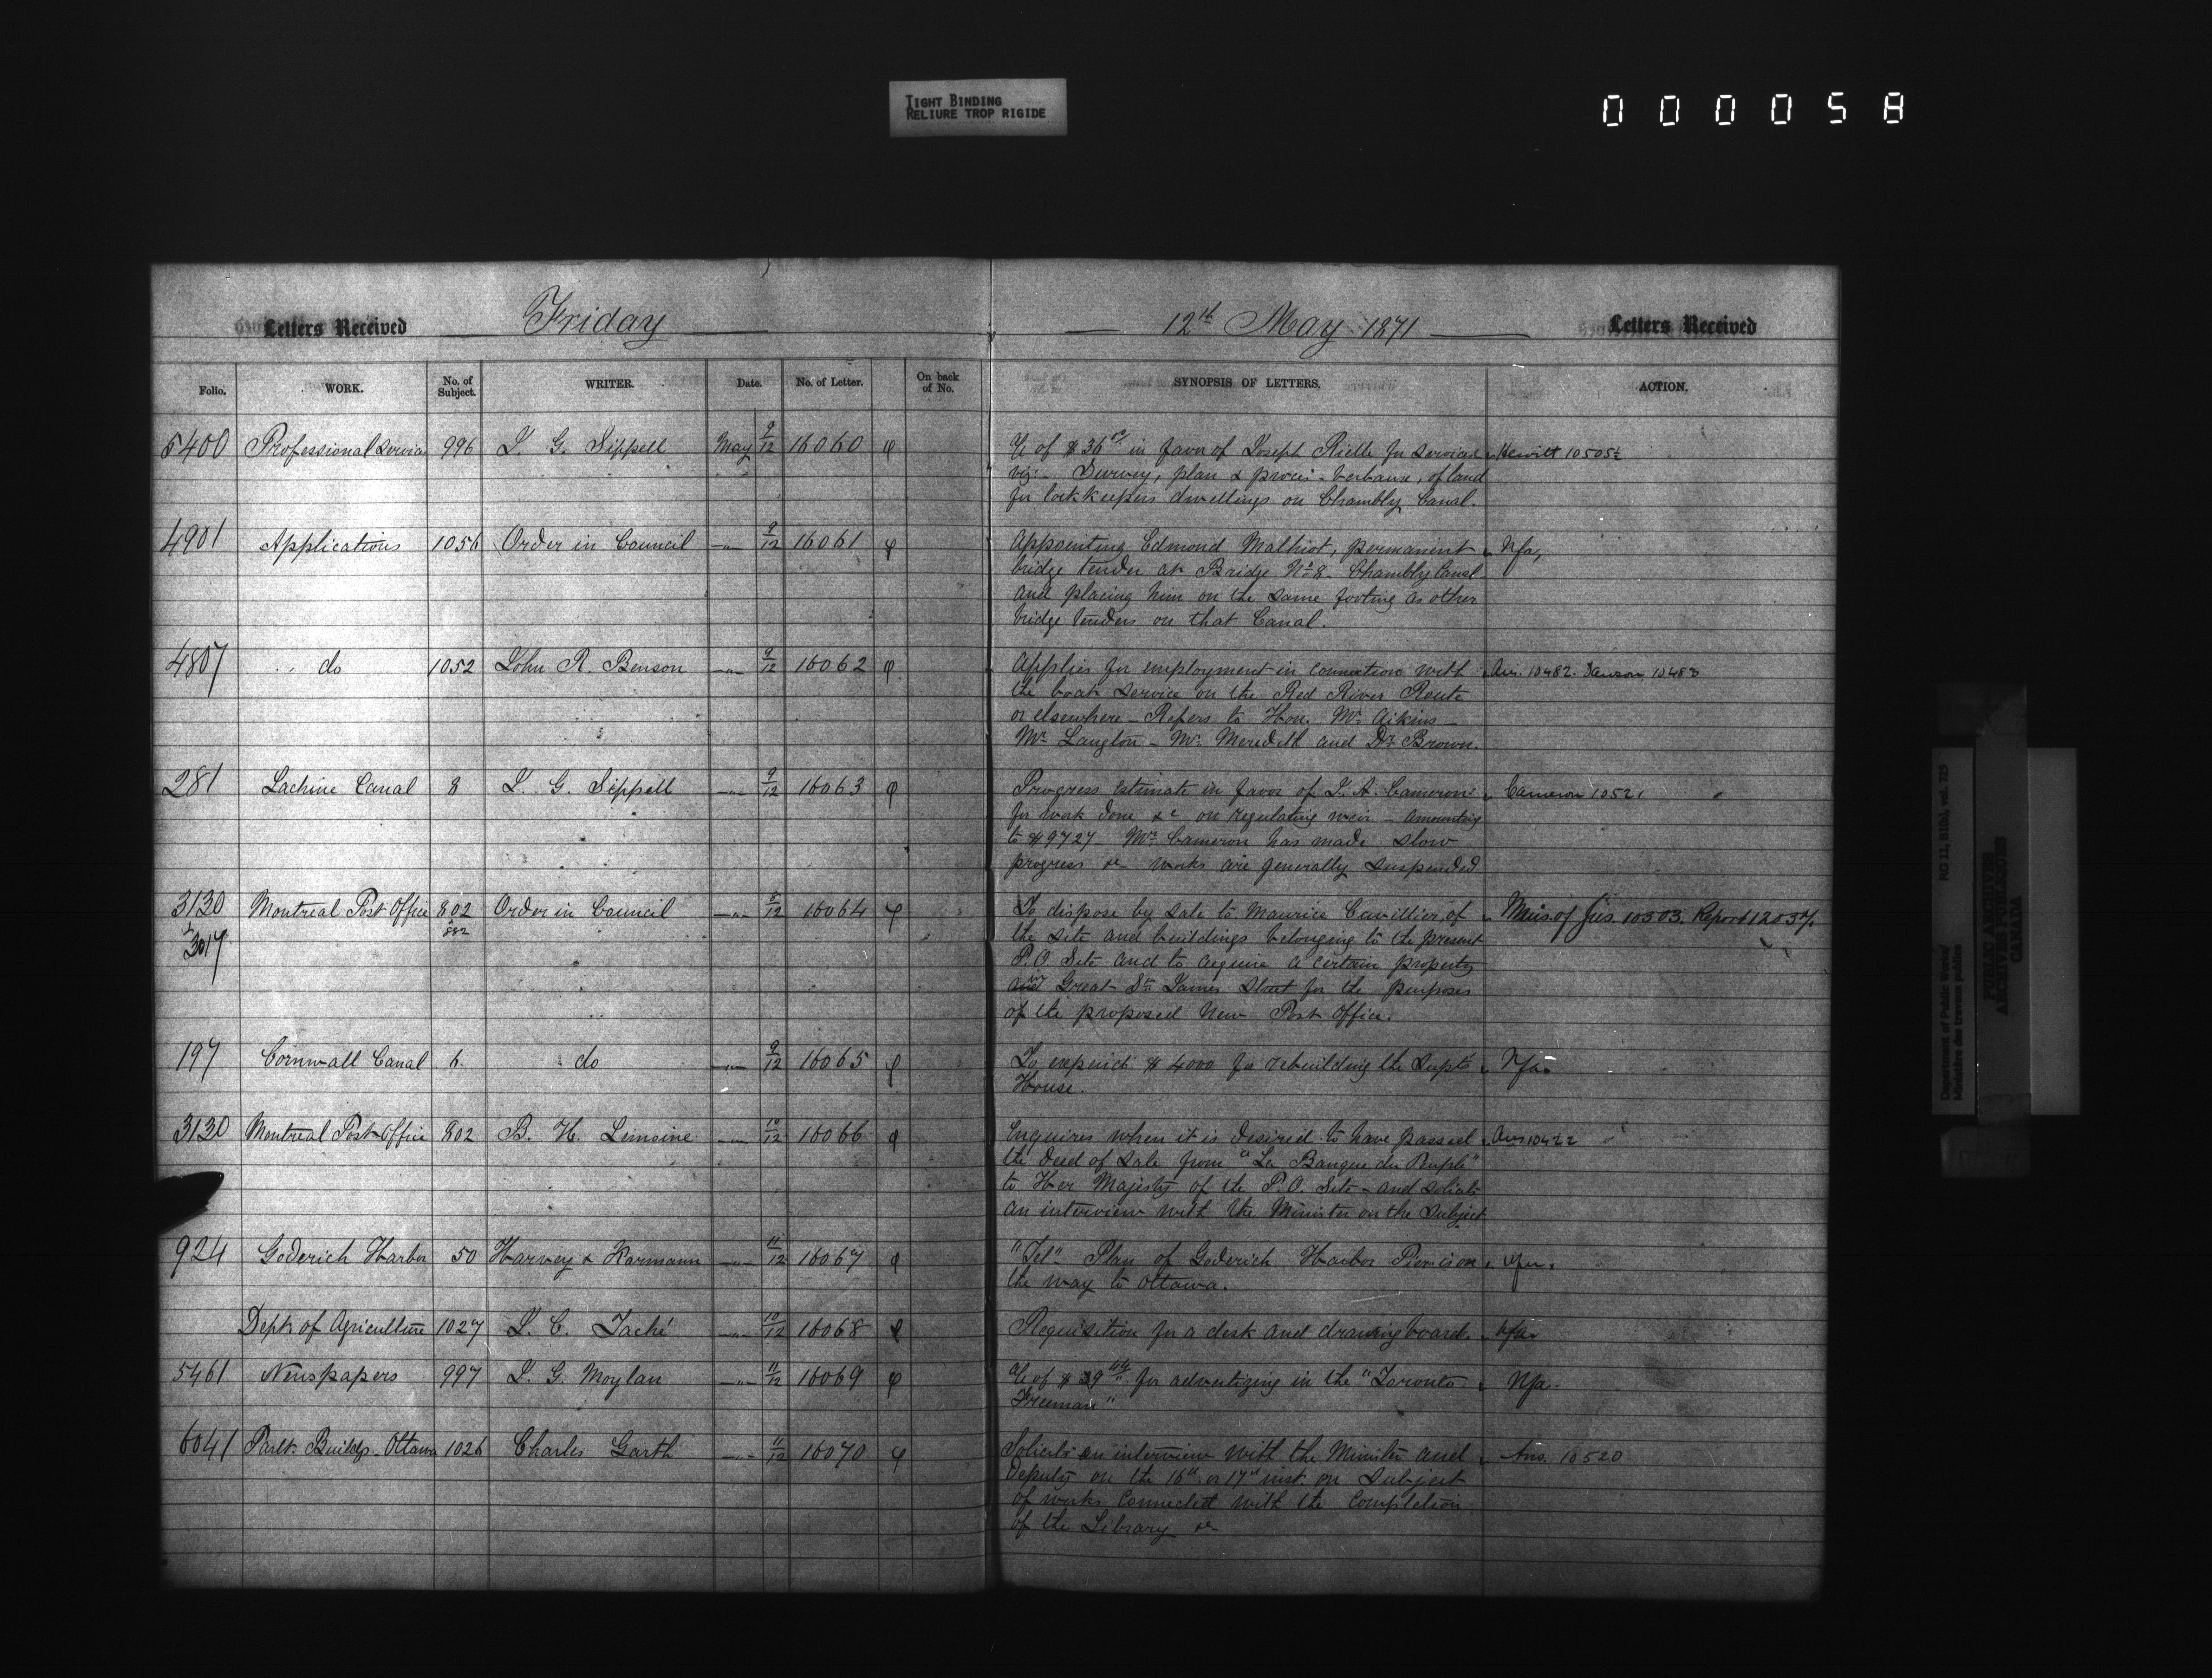 TIGHT BINDING
RELIURE TROP RIGIDE
000058
Letters Received Friday 12th May 1871 Letters Received
Folio. WORK. No. of Subject. WRITER. Date. No. of Letter. On back of No. SYNOPSIS OF LETTERS. ACTION.
5400 Professional Services 996 J. G. Sippell May 9/12 16060 of $36 in favor of Joseph Rielle for services Hewitt 10505½
viz:- Survey, plan & procès-verbaux, of land
for lockkeepers dwellings on Chambly Canal.
4901 Applications 1056 Order in Council 9/12 16061 Appointing Edmond Malhiot, permanent Nfa,
bridge tender at Bridge No 8. Chambly Canal
and placing him on the same footing as other
bridge tenders on that Canal.
4807 do 1052 John R. Benson 9/12 16062 Applies for employment in connection with Ans. 10482. Dawson 10483
the boat service on the Red River Route
or elsewhere - Refers to Hon. Mr Aikins -
Mr Langton - Mr Meredith and Dr Brown.
281 Lachine Canal 8 J. G. Sippell 9/12 16063 Progress Estimate in favor of J. A. Cameron Cameron 10521
for work done &c on regulating weir - amounting
to $9727 - Mr Cameron has made slow
progress &c works are generally suspended
3130 Montreal Post Office 802 Order in Council 8/12 16064 To dispose by sale to Maurice Cuvillier, of Min. of Jus. 10503. Report 12037.
& 882
3017 the site and buildings belonging to the present
P.O. Site and to acquire a certain property
in Great St James Street for the purposes
of the proposed New Post Office.
197 Cornwall Canal 6. do 9/12 16065 To expend $4000 for rebuilding the Supt's Nfa.
House.
3130 Montreal Post Office 802 B. H. Lemoine 10/12 16066 Enquires when it is desired to have passed Ans 10422
the deed of sale from "La Banque du Peuple"
to Her Majesty of the P.O. Site - and solicits
an interview with the Minister on the subject
924 Goderich Harbor 50 Harvey & 11/12 16067 "Tel" Plan of Goderich Harbor on Nfa.
the way to Ottawa.
Dept of Agriculture 1027 J. C. Taché 10/12 16068 Requisition for a desk and drawing board. Nfa
5461 Newspapers 997 J. G. Moylan 11/12 16069 of $39 for advertizing in the "Toronto Nfa.
Freeman"
6041 Parlt. Buildgs. Ottawa 1026 Charles Garth 11/12 16070 Solicits an interview with the Minister and Ans. 10520
Deputy on the 16th or 17th inst. on subject
of works connected with the completion
of the Library &c
Department of Public Works/ RG 11, B1(b), vol. 725
Ministère des travaux publics
PUBLIC ARCHIVES
ARCHIVES PUBLIQUES
CANADA